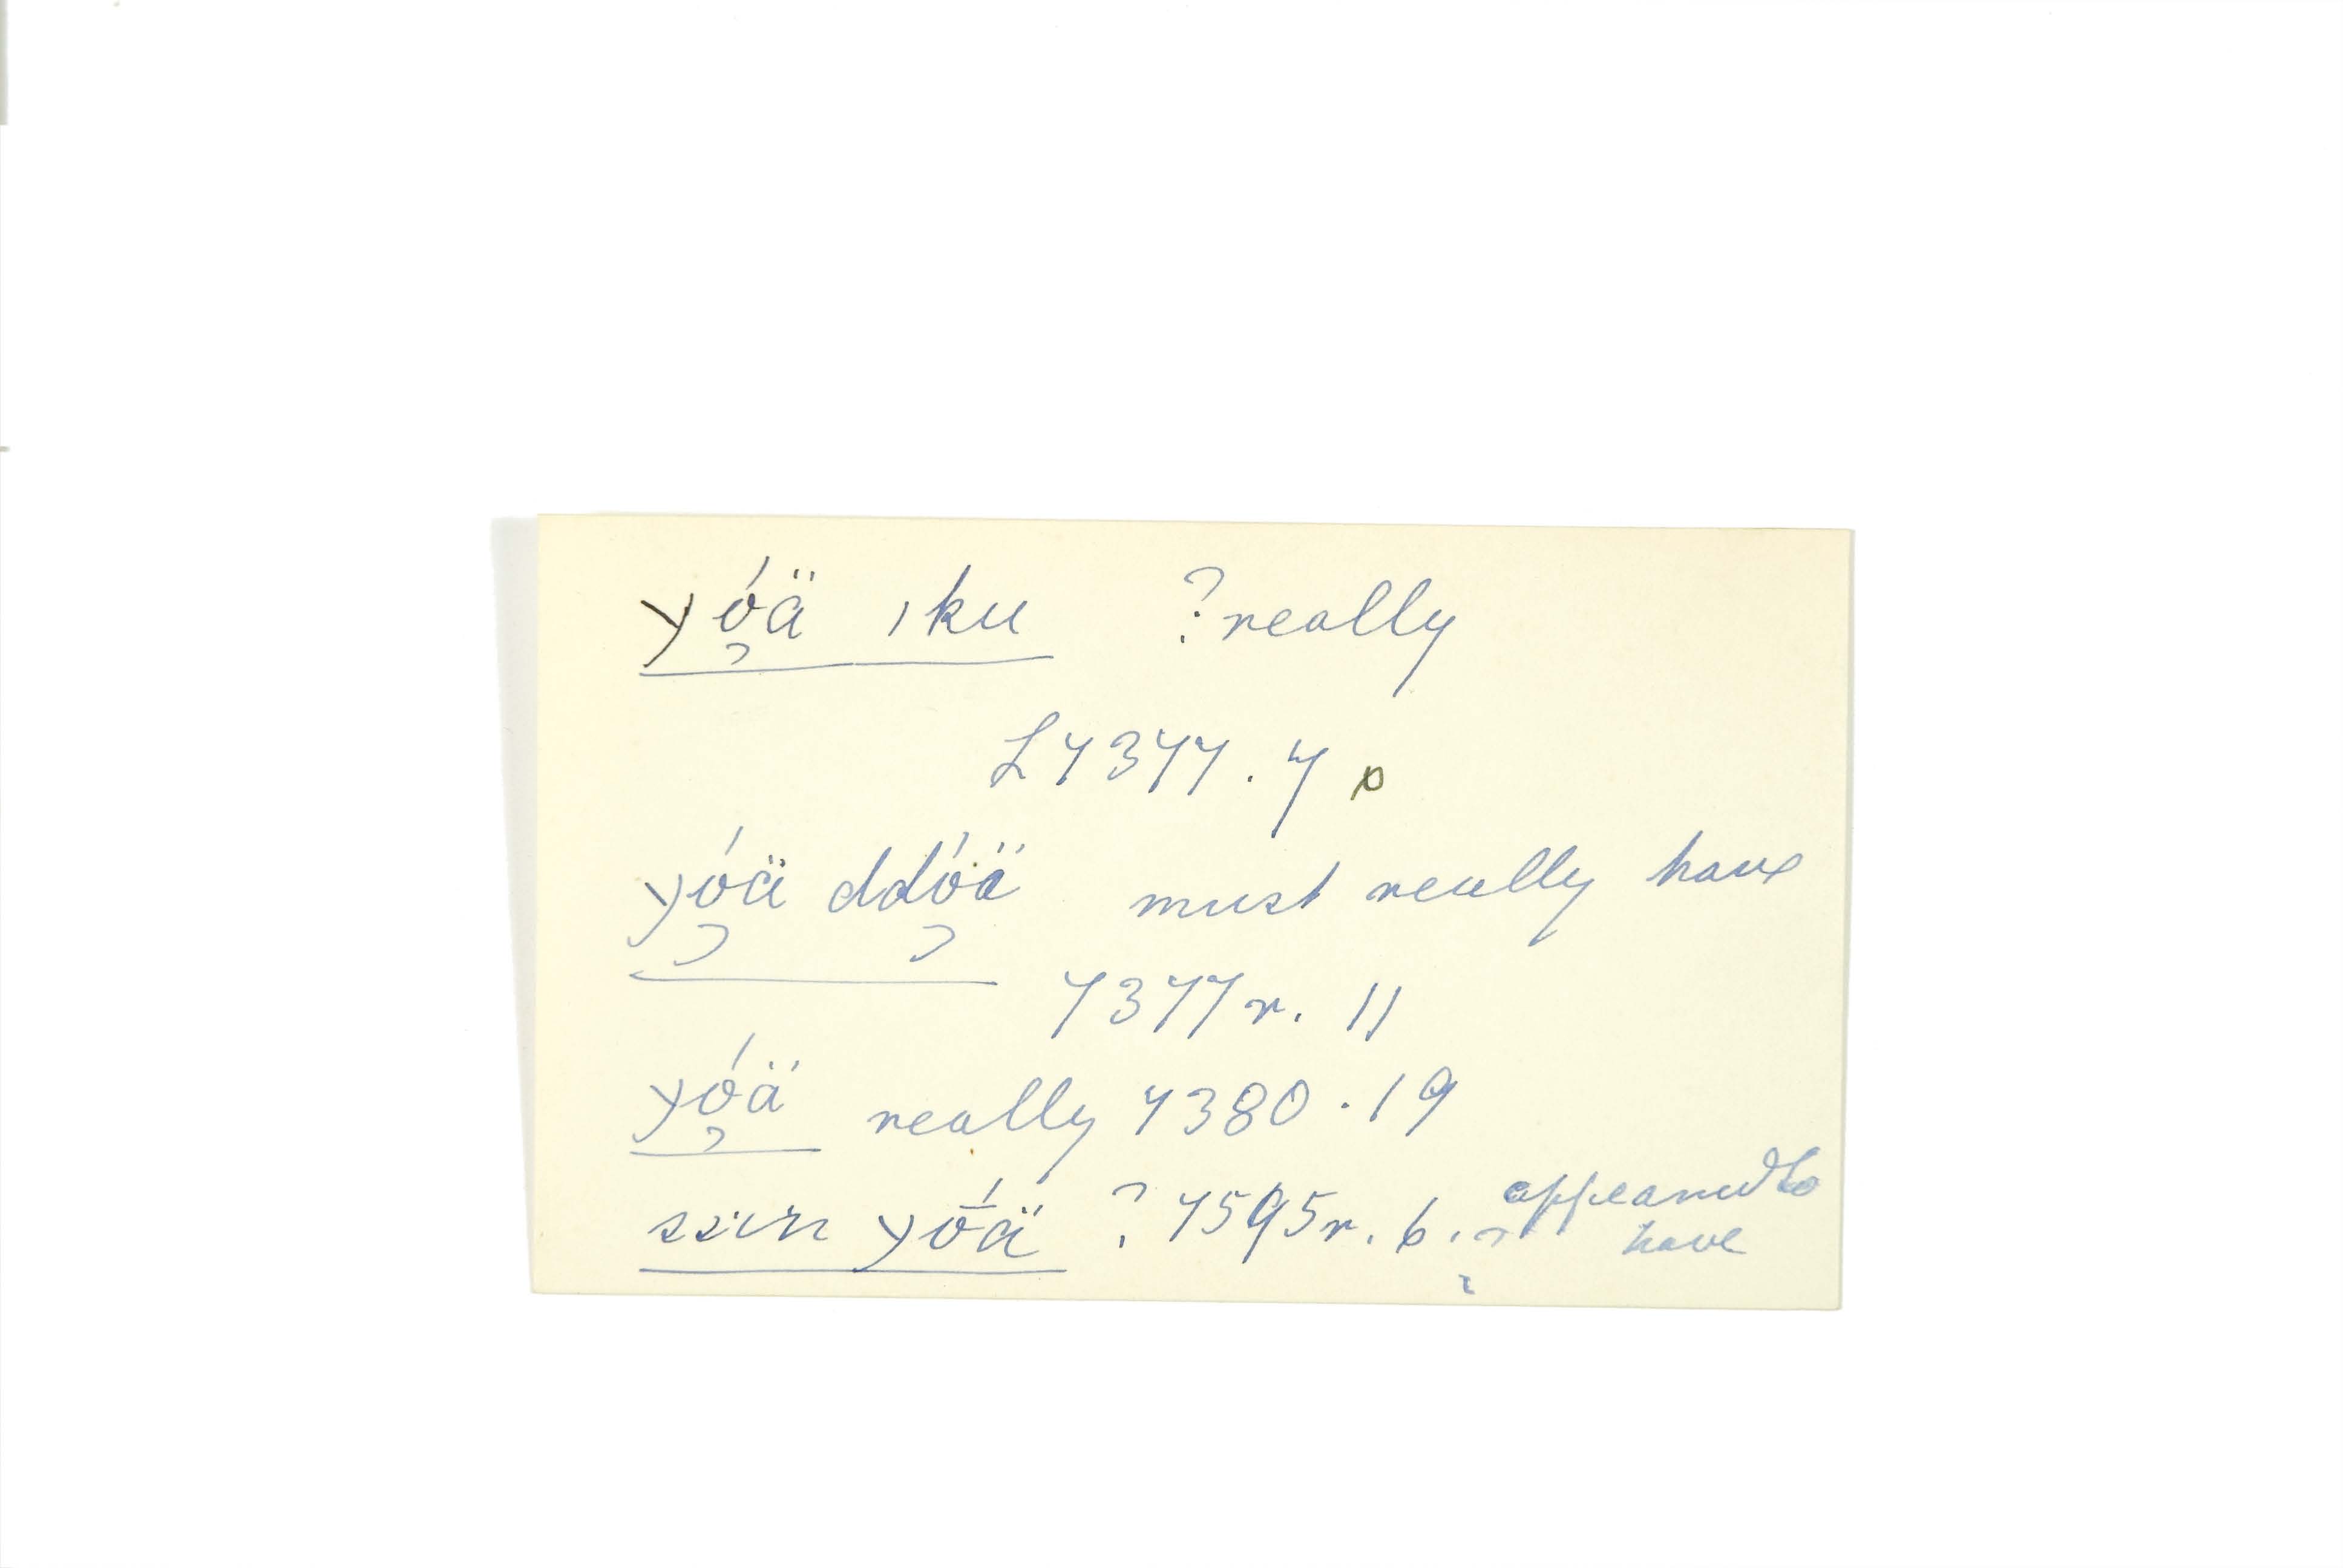 yǫ́ä ıku ?really
L7377.7
yǫ́ä ddǫ́ä must really have
7377r. 11
yǫ́ä really 7380.19
yṓä ? 7595r. 6. appeared to
have